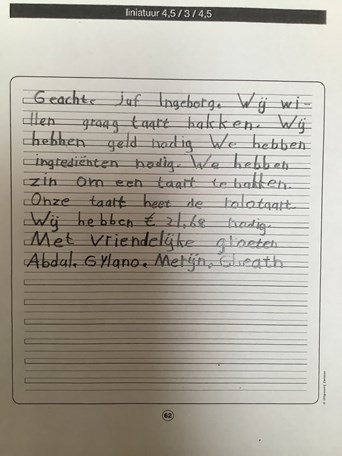 liniatuur 4,5 / 3 / 4,5
Geachte juf Ingeborg. Wij wi-
llen graag taart bakken. Wij
hebben geld nodig We hebben
ingrediënten nodig. We hebben
zin om een taart te bakken.
Onze taart heet de
Wij hebben € 21,68 nodig.
Met vriendelijke groeten
Abdal. Gylano. Merijn. Gheath
62